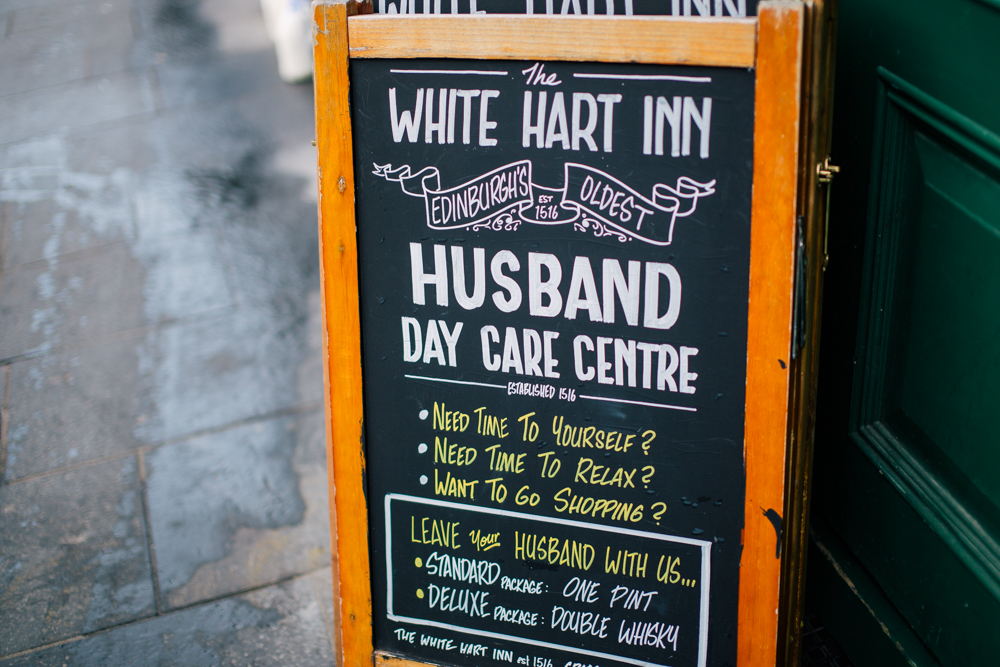 WHITE HART INN
The
WHITE HART INN
EDINBURGH'S EST 1516 OLDEST
HUSBAND
DAY CARE CENTRE
ESTABLISHED 1516
• NEED TIME TO YOURSELF?
• NEED TIME TO RELAX?
• WANT TO GO SHOPPING?
LEAVE your HUSBAND WITH US...
• STANDARD PACKAGE: ONE PINT
• DELUXE PACKAGE: DOUBLE WHISKY
THE WHITE HART INN est 1516